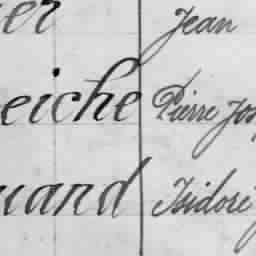 er Jean
eiche Pierre Jos
uand Isidore